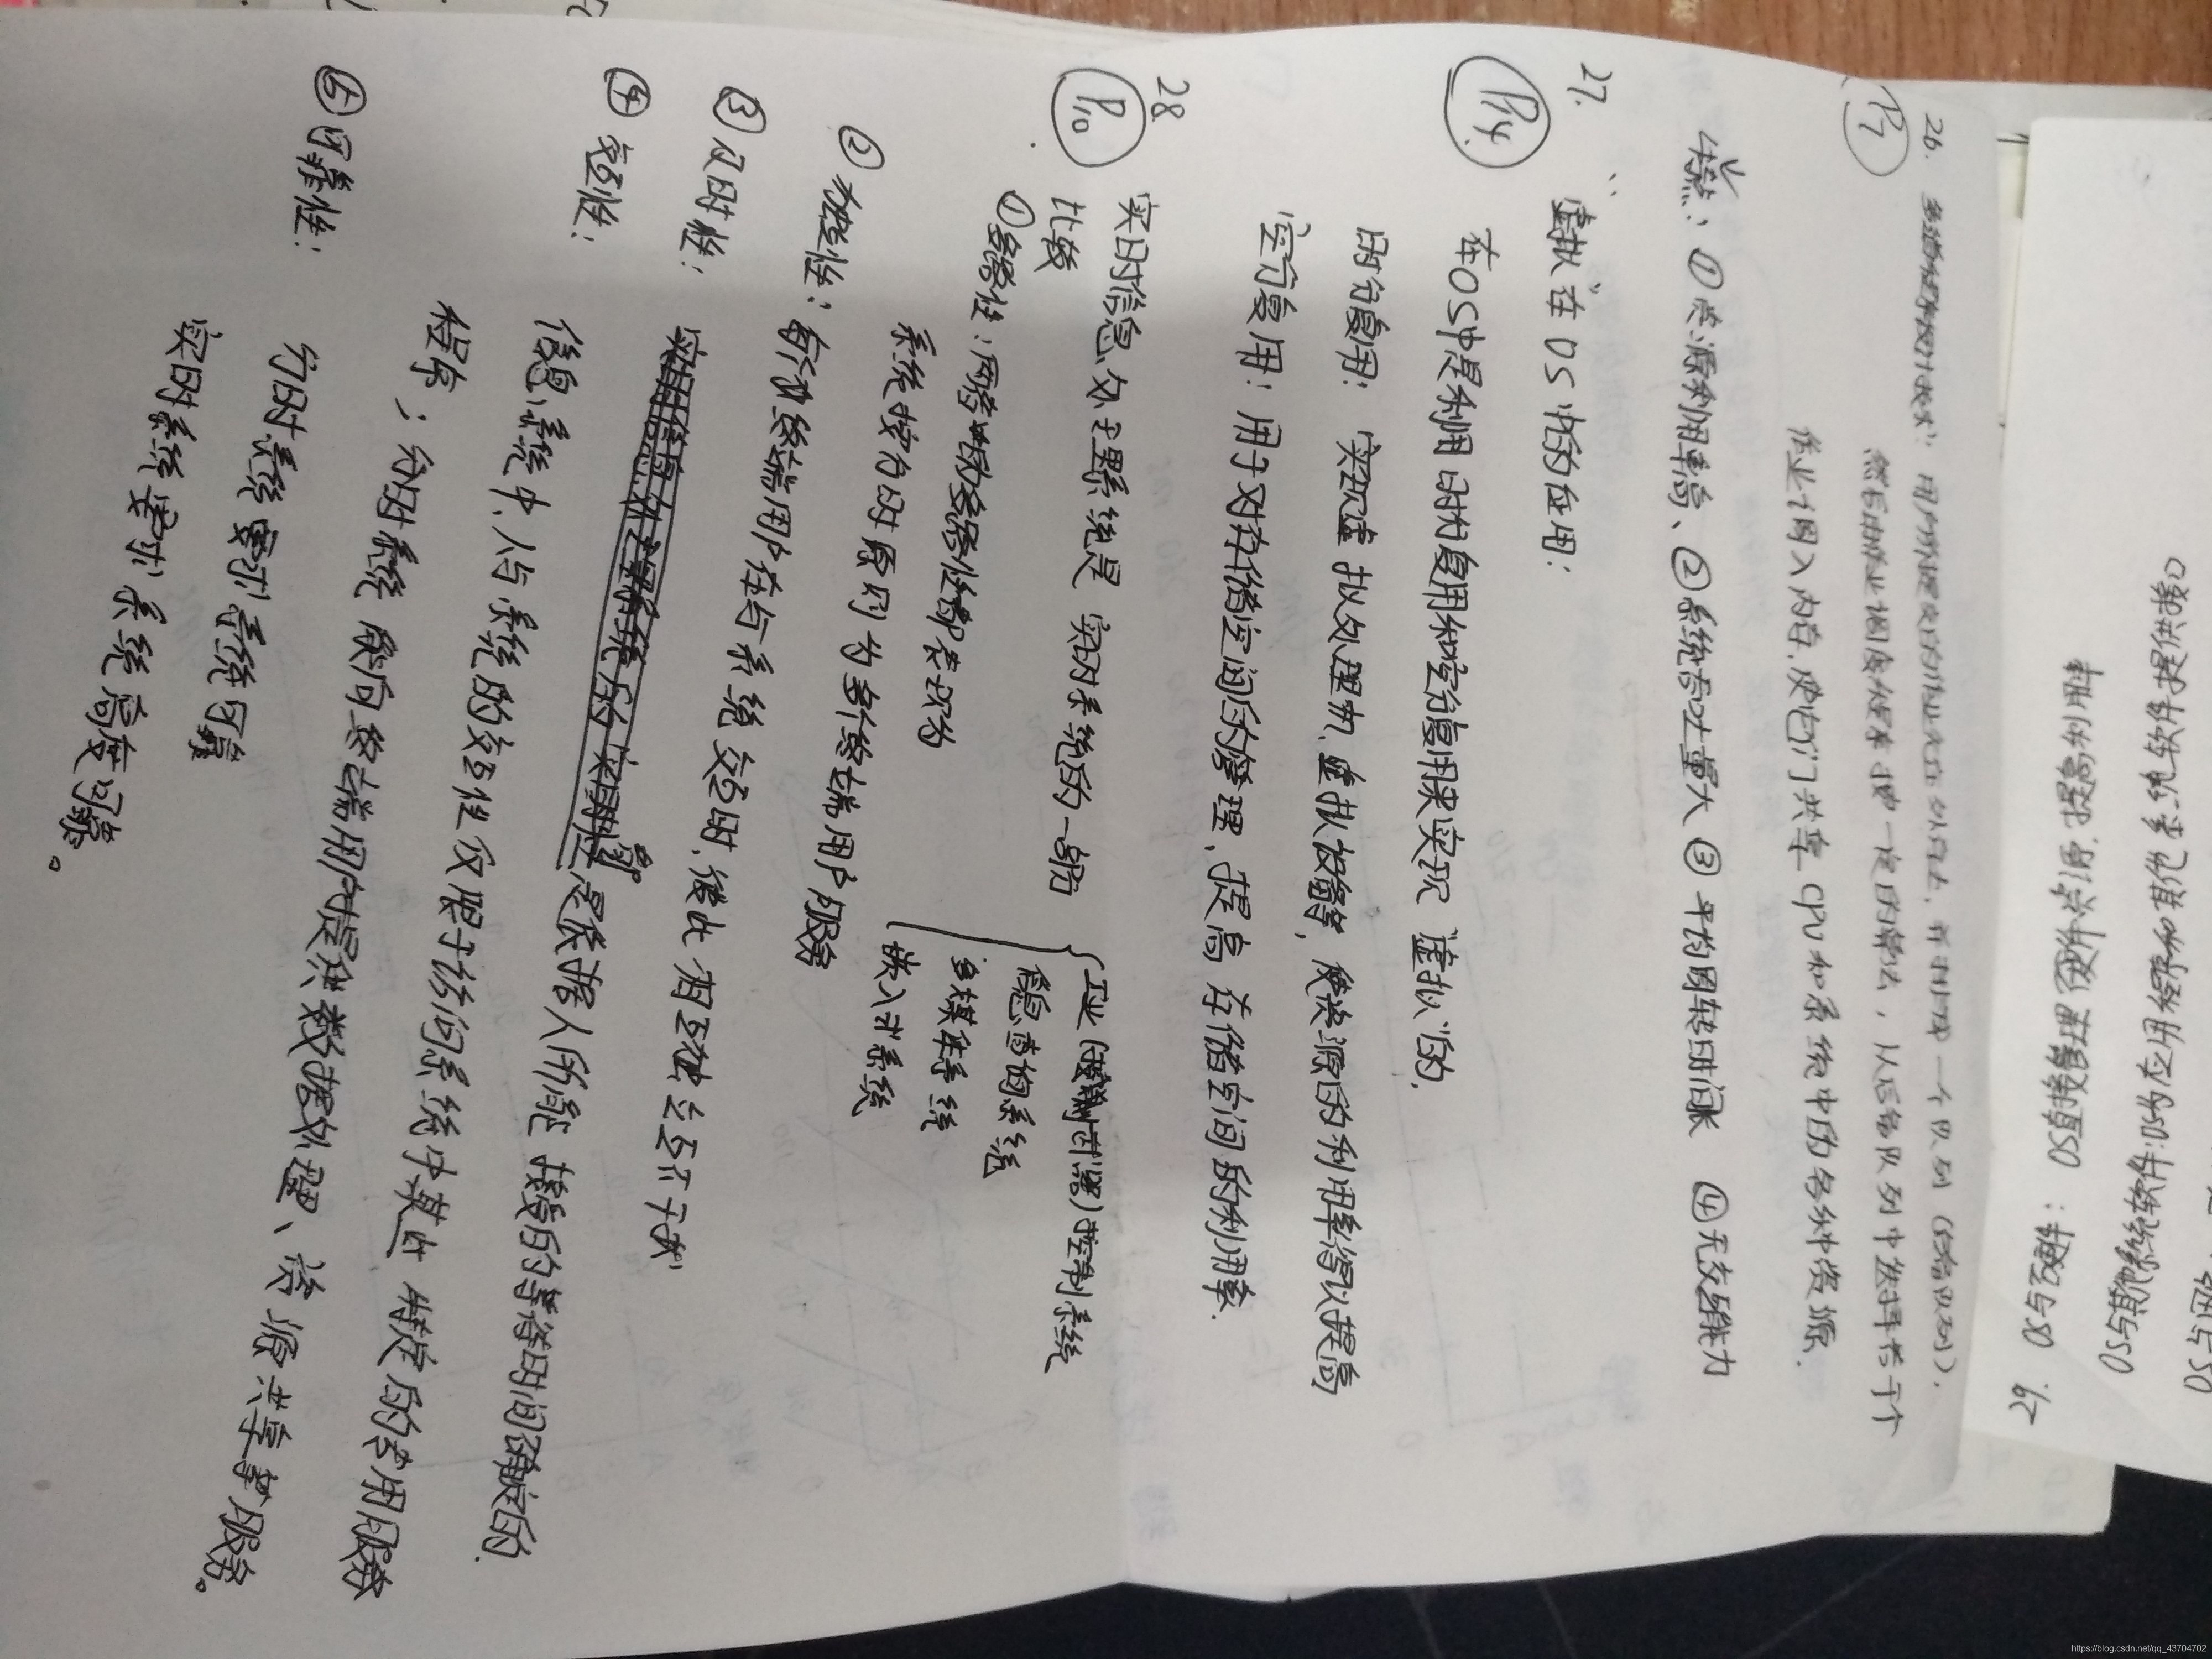 26. 多道程序设计技术: 用户所提交的作业先放在外存上, 并排成一个队列 (后备队列).
P7
然后由作业调度程序按一定的算法, 从后备队列中选择若干个
作业调入内存, 使它们共享CPU和系统中的各种资源.
特点: ①资源利用率高、②系统吞吐量大 ③平均周转时间长 ④无交互能力
27. “虚拟”在OS中的应用:
P14
在OS中是利用时分复用和空分复用来实现“虚拟”的.
时分复用: 实现虚拟处理机, 虚拟设备等, 使资源的利用率得以提高
空分复用: 用于对存储空间的管理, 提高存储空间的利用率.
28.
P10
实时信息处理系统是实时系统的一部分
工业(武器)控制系统
信息查询系统
多媒体系统
嵌入式系统
比较
①多路性: 两者中的多路性都表现为
系统按分时原则为多个终端用户服务
②独立性: 每个终端用户在与系统交互时, 彼此相互独立互不干扰
③及时性: 是依据人所能接受的等待时间确定的.
④交互性: 信息系统中人与系统的交互性仅限于访问系统中某些特定的专用服务
程序; 分时系统能向终端用户提供数据处理、资源共享等服务。
⑤可靠性: 分时系统要求系统可靠
实时系统要求系统高度可靠。
29. OS与硬件: OS直接管理硬件资源, 提高利用率
OS与其他系统软件: OS为应用程序和其他系统软件提供接口
https://blog.csdn.net/qq_43704702